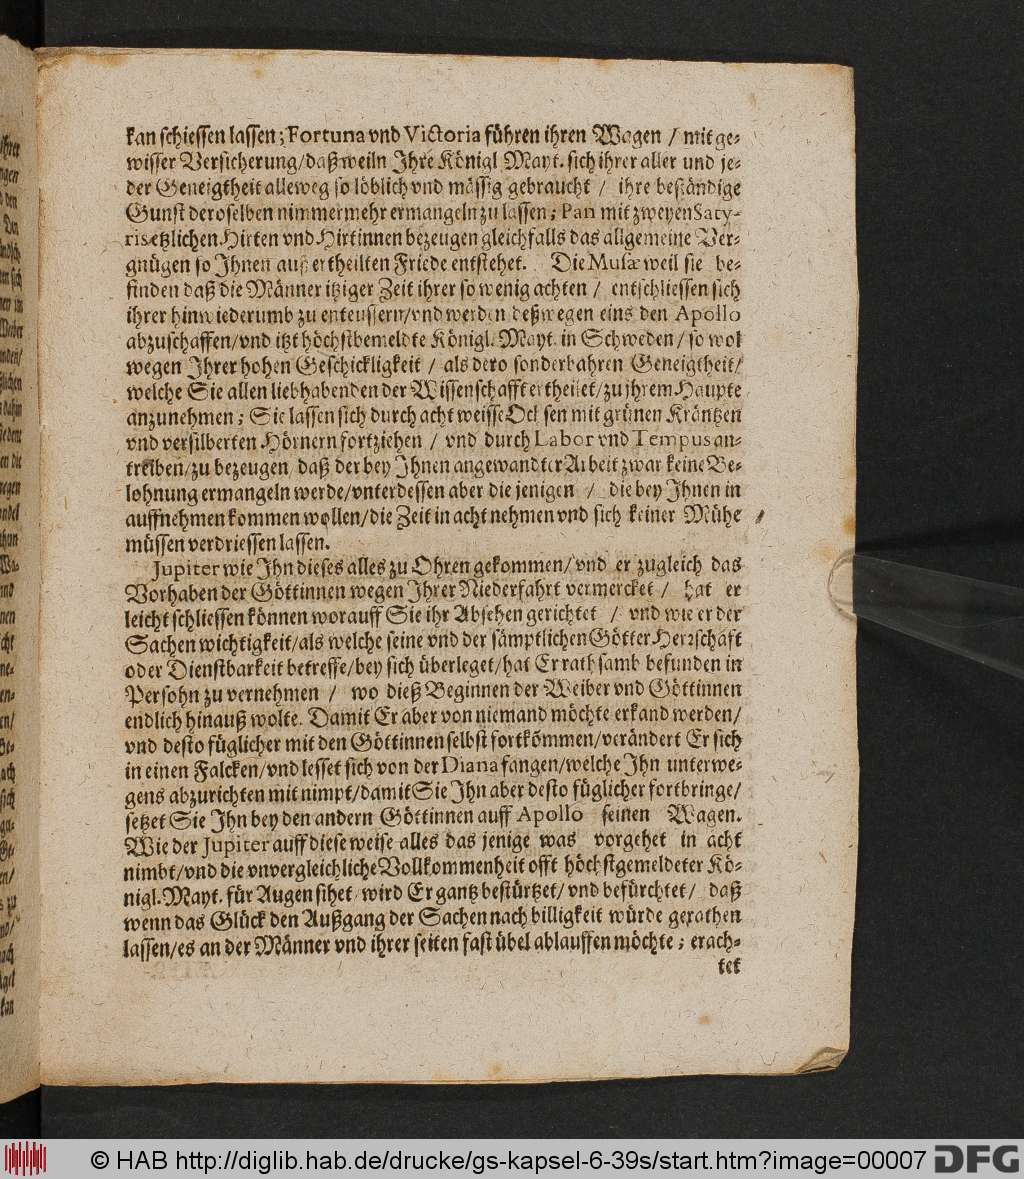 kan schiessen lassen; Fortuna vnd Victoria führen ihren Wagen / mit ge-
wisser Versicherung/daß weiln Ihre Königl Mayt. sich ihrer aller und je-
der Geneigtheit alleweg so löblich vnd mässig gebraucht / ihre beständige
Gunst deroselben nimmermehr ermangeln zu lassen; Pan mit zweyen Saty-
ris etzlichen Hirten vnd Hirtinnen bezeugen gleichfalls das allgemeine Ver-
gnügen so Ihnen auß ertheilten Friede entstehet. Die Musæ weil sie be-
finden daß die Männer itziger Zeit ihrer so wenig achten / entschliessen sich
ihrer hinwiederumb zu enteussern/vnd werden deßwegen eins den Apollo
abzuschaffen/vnd itzt höchstbemeldte Königl. Mayt. in Schweden/so wol
wegen Ihrer hohen Geschickligkeit / als dero sonderbahren Geneigtheit/
welche Sie allen liebhabenden der Wissenschafft ertheilet/zu ihrem Haupte
anzunehmen; Sie lassen sich durch acht weisse Ochsen mit grünen Kräntzen
vnd versilberten Hörnern fortziehen / vnd durch Labor vnd Tempus an-
treiben/zu bezeugen daß der bey Ihnen angewandter Arbeit zwar keine Be-
lohnung ermangeln werde/vnterdessen aber die jenigen / die bey Ihnen in
auffnehmen kommen wollen/die Zeit in acht nehmen vnd sich keiner Mühe
müssen verdriessen lassen.
Jupiter wie Ihn dieses alles zu Ohren gekommen/vnd er zugleich das
Vorhaben der Göttinnen wegen Ihrer Niederfahrt vermercket / hat er
leicht schliessen können worauff Sie ihr Absehen gerichtet / vnd wie er der
Sachen wichtigkeit/als welche seine vnd der sämptlichen Götter Herzschaft
oder Dienstbarkeit betreffe/bey sich überleget/hat Er rathsamb befunden in
Persohn zu vernehmen / wo dieß Beginnen der Weiber vnd Göttinnen
endlich hinauß wolte. Damit Er aber von niemand möchte erkand werden/
vnd desto füglicher mit den Göttinnen selbst fortkömmen/verändert Er sich
in einen Falcken/vnd lesset sich von der Diana fangen/welche Ihn unterwe-
gens abzurichten mit nimpt/damit Sie Ihn aber desto füglicher fortbringe/
setzet Sie Ihn bey den andern Göttinnen auff Apollo seinen Wagen.
Wie der Jupiter auff diese weise alles das jenige was vorgehet in acht
nimbt/vnd die vnvergleichliche Vollkommenheit offt höchstgemeldeter Kö-
nigl. Mayt. für Augen sihet wird Er gantz bestürtzet/vnd befürchtet/ daß
wenn das Glück den Außgang der Sachen nach billigkeit würde gerathen
lassen/es an der Männer vnd ihrer seiten fast übel ablauffen möchte; erach-
tet
© HAB http://diglib.hab.de/drucke/gs-kapsel-6-39s/start.htm?image=00007 DFG